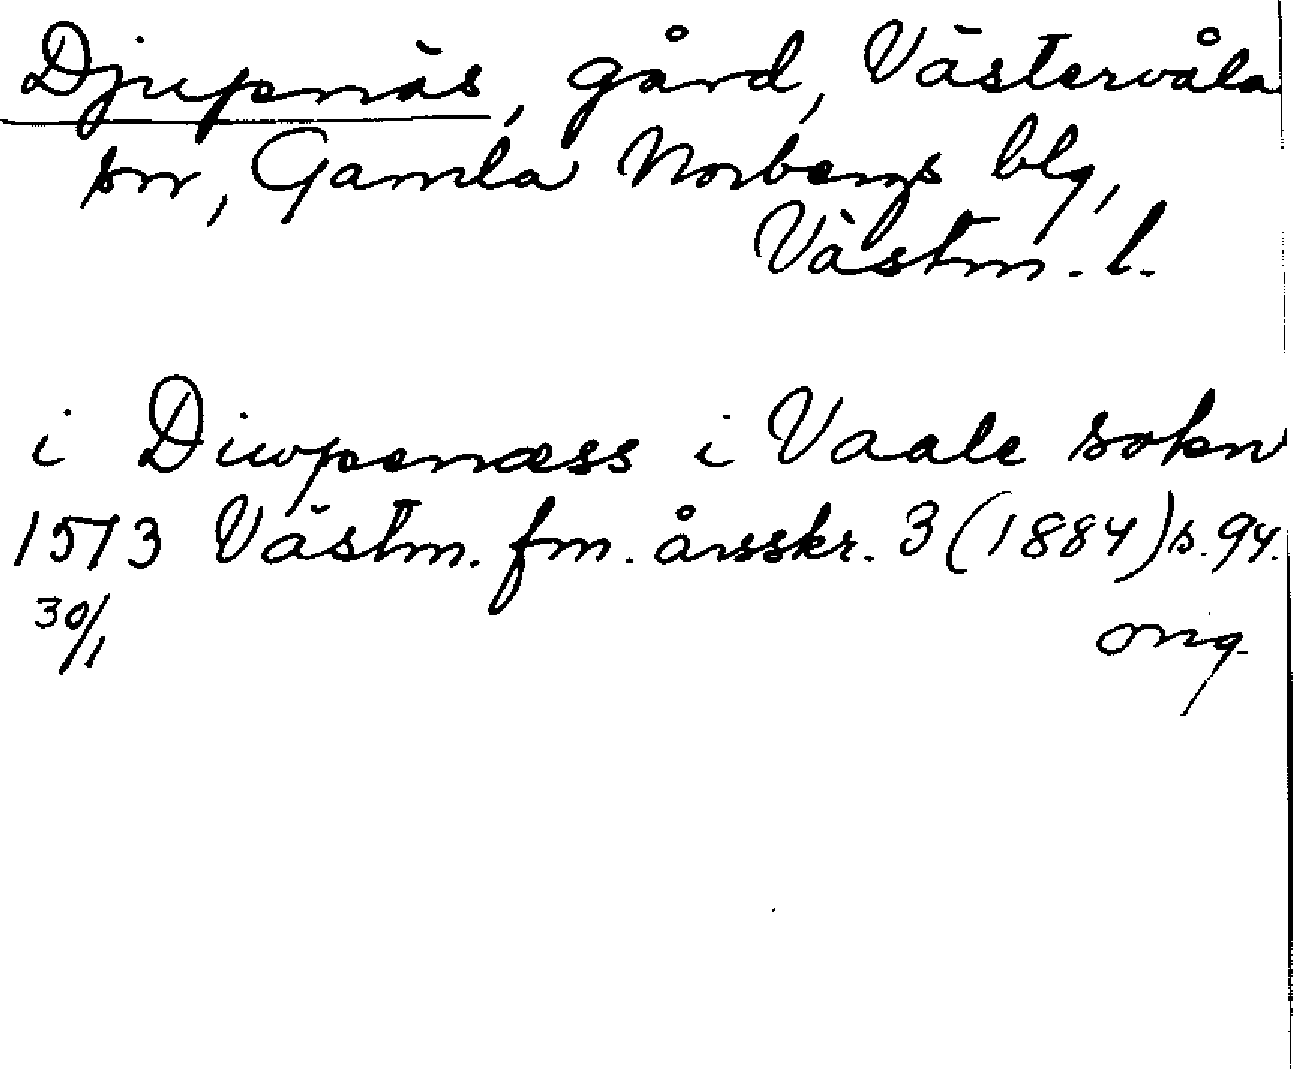 Djupnäs, gård, Västervåla
sn, Gamla Norbergs blg,
Västm. l.
i Diwpenæss i Vaale sokn
1513 Västm. fm. årsskr. 3 (1884) s. 94.
30/1 orig.